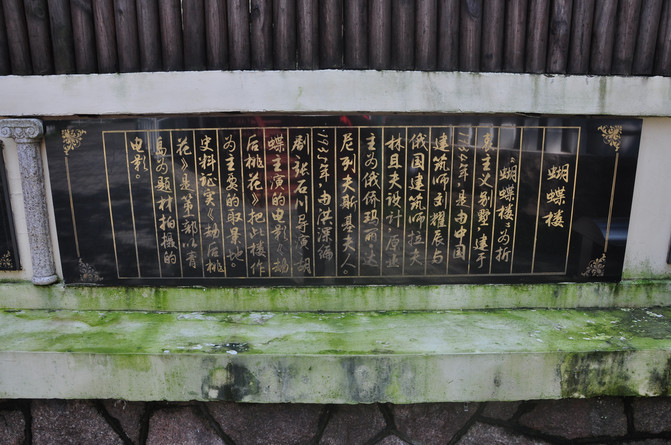 蝴蝶楼
“蝴蝶楼”为折
衷主义别墅，建于
1934年，是由中国
建筑师刘耀辰与
俄国建筑师拉夫
林且夫设计，原业
主为俄侨玛丽·达
尼列夫斯基夫人。
1934年，由洪深编
剧，张石川导演，胡
蝶主演的电影《劫
后桃花》把此楼作
为主要的取景地。
史料证实《劫后桃
花》是第一部以青
岛为题材拍摄的
电影。